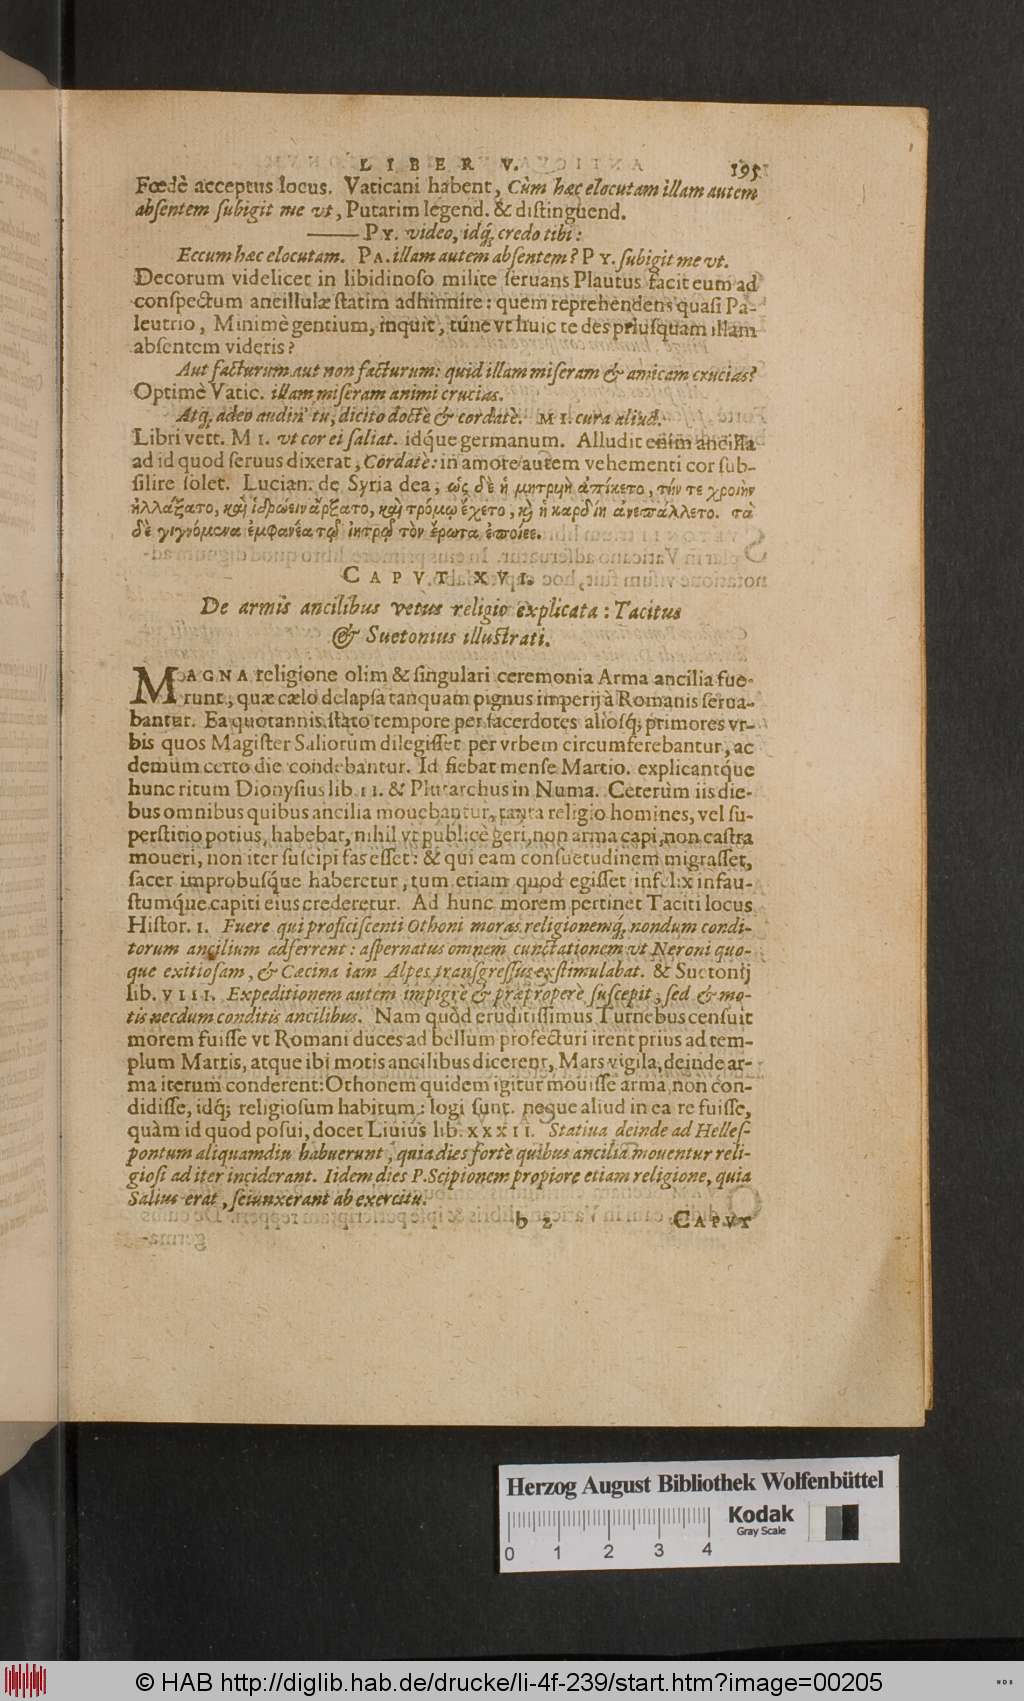 LIBER V. 195
Fœdè acceptus locus. Vaticani habent, Cùm hæc elocutam illam autem
absentem subigit me vt, Putarim legend. & distinguend.
—— PY. video, idq́; credo tibi:
Eccum hæc elocutam. PA. illam autem absentem? PY. subigit me vt.
Decorum videlicet in libidinoso milite seruans Plautus facit eum ad
conspectum ancillulæ statim adhinnire: quem reprehendens quasi Pa-
leutrio, Minimè gentium, inquit, túne vt huic te des priusquam illam
absentem videris?
Aut facturum aut non facturum: quid illam miseram & amicam crucias?
Optimè Vatic. illam miseram animi crucias.
Atq́; adeo audin' tu, dicito doctè & cordatè. MI. cura aliud.
Libri vett. MI. vt cor ei saliat. idq́ue germanum. Alludit enim ancilla
ad id quod seruus dixerat, Cordatè: in amore autem vehementi cor sub-
silire solet. Lucian. de Syria dea, ὡς δὲ ἡ μητρυιὴ ἀπίκετο, τήν τε χροιὴν
ἠλλάξατο, καὶ ἱδρώειν ἄρξατο, καὶ τρόμῳ ἔχετο, κὶ ἡ καρδίη ἀνεπάλλετο. τὰ
δὲ γιγνόμενα ἐμφανέα τῷ ἰητρῷ τὸν ἔρωτα ἐποίεε.
CAPVT XVI.
De armis ancilibus vetus religio explicata: Tacitus
& Suetonius illustrati.
MAGNA religione olim & singulari ceremonia Arma ancilia fue-
runt, quæ cælo delapsa tanquam pignus imperij à Romanis serua-
bantur. Ea quotannis stato tempore per sacerdotes aliosq́; primores vr-
bis quos Magister Saliorum dilegisset per vrbem circumferebantur, ac
demum certo die condebantur. Id fiebat mense Martio. explicantq́ue
hunc ritum Dionysius lib. II. & Plutarchus in Numa. Ceterùm iis die-
bus omnibus quibus ancilia mouebantur, tanta religio homines, vel su-
perstitio potius, habebat, nihil vt publicè geri, non arma capi, non castra
moueri, non iter suscipi fas esset: & qui eam consuetudinem migrasset,
sacer improbusq́ue haberetur, tum etiam quod egisset infelix infau-
stumq́ue capiti eius crederetur. Ad hunc morem pertinet Taciti locus
Histor. I. Fuere qui proficiscenti Othoni moras religionemq́; nondum condi-
torum ancilium adferrent: aspernatus omnem cunctationem vt Neroni quo-
que exitiosam, & Cæcina iam Alpes transgressus exstimulabat. & Suetonij
lib. VIII. Expeditionem autem impigrè & præproperè suscepit, sed & mo-
tis necdum conditis ancilibus. Nam quòd eruditissimus Turnebus censuit
morem fuisse vt Romani duces ad bellum profecturi irent prius ad tem-
plum Martis, atque ibi motis ancilibus dicerent, Mars vigila, deinde ar-
ma iterum conderent: Othonem quidem igitur mouisse arma, non con-
didisse, idq́; religiosum habitum: logi sunt. neque aliud in ea re fuisse,
quàm id quod posui, docet Liuius lib. XXXII. Statiua deinde ad Helles-
pontum aliquamdiu habuerunt, quia dies fortè quibus ancilia mouentur reli-
giosi ad iter inciderant. Iidem dies P. Scipionem propiore etiam religione, quia
Salius erat, seiunxerant ab exercitu.
b 2 CAPVT
Herzog August Bibliothek Wolfenbüttel
Kodak
Gray Scale
0 1 2 3 4
© HAB http://diglib.hab.de/drucke/li-4f-239/start.htm?image=00205